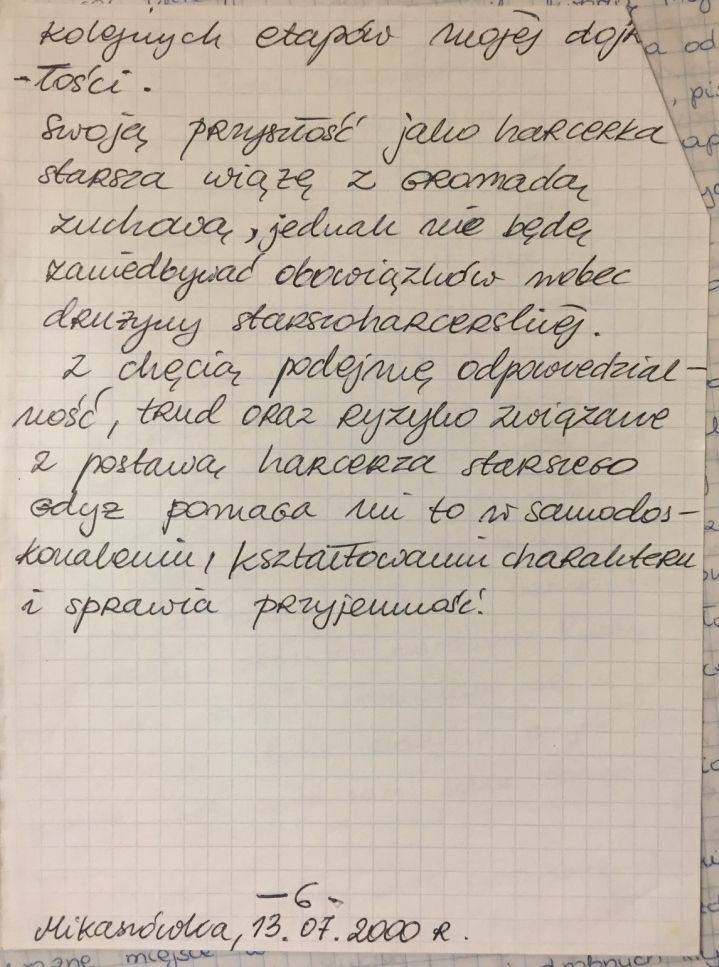 kolejnych etapów mojej dojr
-łości.
Swoją przyszłość jako harcerka
starsza wiążę z gromadą
zuchową, jednak nie będę
zaniedbywać obowiązków wobec
drużyny starszoharcerskiej.
Z chęcią podejmę odpowiedzial-
ność, trud oraz ryzyko związane
z postawą harcerza starszego
gdyż pomaga mi to w samodos-
konaleniu, kształtowaniu charakteru
i sprawia przyjemność.
-6-
Mikaszówka, 13.07.2000 r.